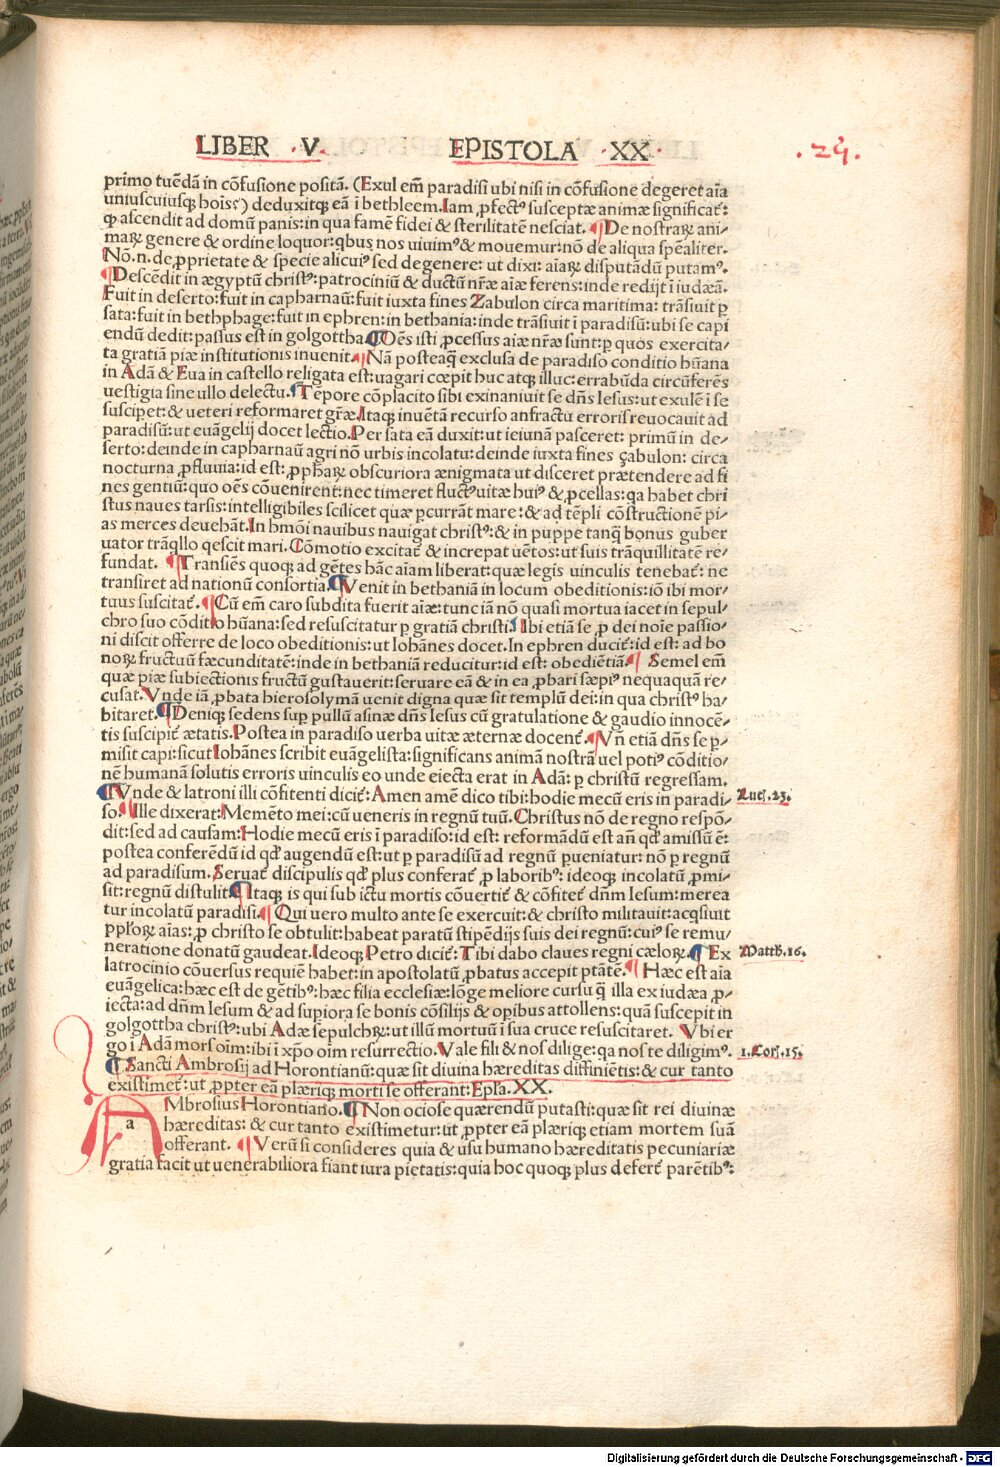 LIBER · V · EPISTOLA · XX ·
. 24 .
primo tuēdā in cōfusione positā. (Exul em̄ paradisi ubi nisi in cōfusione degeret aīa
uniuscuiusqꝫ hoīs?) deduxitqꝫ eā ī bethleem. Iam ꝓfectꝰ susceptæ animæ significat̄:
qꝙ ascendit ad domū panis: in qua famē fidei & sterilitatē nesciat. ¶ De nostraꝝ ani⸗
maꝝ genere & ordine loquor: qbus nos uiuimꝰ & mouemur: nō de aliqua spēaliter.
Nō.n. de ꝓprietate & specie alicuiꝰ sed degenere: ut dixi: aīaꝝ disputādū putamꝰ.
¶ Descēdit in ægyptū christꝰ: patrociniū & ductū nr̄æ aīæ ferens: inde redijt ī iudæā.
Fuit in deserto: fuit in capharnaū: fuit iuxta fines Zabulon circa maritima: trāsiuit ꝑ
sata: fuit in bethphage: fuit in ephren: in bethania: inde trāsiuit ī paradisū: ubi se capi
endū dedit: passus est in golgottha. ¶ Oēs isti ꝓcessus aīæ nr̄æ sunt: ꝑ quos exercita⸗
ta gratiā piæ institutionis inuenit. ¶ Nā posteaq̄ exclusa de paradiso conditio hūana
in Adā & Eua in castello religata est: uagari cœpit huc atqꝫ illuc: errabūda circūferēs
uestigia sine ullo delectu. ¶ Tēpore cōplacito sibi exinaniuit se dn̄s Iesus: ut exulē ī se
susciperet: & ueteri reformaret gr̄æ. Itaqꝫ inuētā recurso anfractu erroris reuocauit ad
paradisū: ut euāgelij docet lectio. Per sata eā duxit: ut ieiunā pasceret: primū in de⸗
serto: deinde in capharnaū agri nō urbis incolatu: deinde iuxta fines çabulon: circa
nocturna ꝓfluuia: id est: ꝓphaꝝ obscuriora ænigmata ut disceret prætendere ad fi
nes gentiū: quo oēs cōuenirent: nec timeret fluctꝰ uitæ huiꝰ & ꝓcellas: qa habet chri
stus naues tarsis: intelligibiles scilicet quæ ꝑcurrāt mare: & ad tēpli cōstructionē pi⸗
as merces deuehāt. In hmōi nauibus nauigat christꝰ: & in puppe tanq̄ bonus guber
uator trāqllo qescit mari. Cōmotio excitat̄ & increpat uētos: ut suis trāquillitatē re⸗
fundat. ¶ Transiēs quoqꝫ ad gētes hāc aīam liberat: quæ legis uinculis tenebat̄: ne
transiret ad nationū consortia. ¶ Venit in bethaniā in locum obeditionis: iō ibi mor⸗
tuus suscitat̄. ¶ Cū em̄ caro subdita fuerit aīæ: tunc iā nō quasi mortua iacet in sepul⸗
chro suo cōditio hūana: sed resuscitatur ꝑ gratiā christi. Ibi etiā se ꝓ dei noīe passio⸗
ni discit offerre de loco obeditionis: ut Iohānes docet. In ephren ducit̄: id est: ad bo
noꝝ fructuū fæcunditatē: inde in bethaniā reducitur: id est: obediētiā. ¶ Semel em̄
quæ piæ subiectionis fructū gustauerit: seruare eā & in ea ꝓbari sæpiꝰ nequaquā re⸗
cusat. Vnde iā ꝓbata hierosolymam uenit digna quæ sit templū dei: in qua christꝰ ha⸗
bitaret. ¶ Deniqꝫ sedens suꝑ pullū asinæ dn̄s Iesus cū gratulatione & gaudio innocē⸗
tis suscipit̄ ætatis. Postea in paradiso uerba uitæ æternæ docent̄. ¶ Vn̄ etiā dn̄s se ꝑ⸗
misit capi: sicut Iohānes scribit euāgelista: significans animā nostrā uel potiꝰ cōditio⸗
nē humanā solutis erroris uinculis eo unde eiecta erat in Adā: ꝑ christū regressam.
¶ Vnde & latroni illi cōfitenti dicit̄: Amen amē dico tibi: hodie mecū eris in paradi⸗
so. ¶ Ille dixerat: Memēto mei: cū ueneris in regnū tuū. Christus nō de regno respō⸗
dit: sed ad causam: Hodie mecū eris ī paradiso: id est: reformādū est an̄ qd' amissū ē:
postea conferēdū id qd' augendū est: ut ꝑ paradisū ad regnū ꝑueniatur: nō ꝑ regnū
ad paradisum. Seruat̄ discipulis qd' plus conferat̄ ꝓ laboribꝰ: ideoqꝫ incolatū ꝓmi⸗
sit: regnū distulit. ¶ Itaqꝫ is qui sub ictu mortis cōuertit̄ & cōfitet̄ dn̄m Iesum: merea
tur incolatū paradisi. ¶ Qui uero multo ante se exercuit: & christo militauit: acqsiuit
pploꝝ aīas: ꝓ christo se obtulit: habeat paratū stipēdijs suis dei regnū: cuiꝰ se remu⸗
neratione donatū gaudeat. Ideoqꝫ Petro dicit̄: Tibi dabo claues regni cæloꝝ. ¶ Ex
latrocinio cōuersus requiē habet: in apostolatū ꝓbatus accepit ptātē. ¶ Hæc est aīa
euāgelica: hæc est de gētibꝰ: hæc filia ecclesiæ: lōge meliore cursu q̄ illa ex iudæa ꝓ⸗
iecta: ad dn̄m Iesum & ad supiora se bonis cōsilijs & opibus attollens: quā suscepit in
golgottha christꝰ: ubi Adæ sepulchꝝ: ut illū mortuū ī sua cruce resuscitaret. Vbi er
go ī Adā mors oīm: ibi ī xp̄o oīm resurrectio. Vale fili & nos dilige: qa nos te diligimꝰ.
¶ Sancti Ambrosij ad Horontianū: quæ sit diuina hæreditas diffiniētis: & cur tanto
existimet̄: ut ꝓpter eā plæriqꝫ morti se offerant: Epl'a. XX.
AMbrosius Horontiano. ¶ Non ociose quærendū putasti: quæ sit rei diuinæ
a hæreditas: & cur tanto existimetur: ut ꝓpter eā plæriqꝫ etiam mortem suā
offerant. ¶ Verū si consideres quia & usu humano hæreditatis pecuniariæ
gratia facit ut uenerabiliora fiant iura pietatis: quia hoc quoqꝫ plus defert̄ parētibꝰ:
Luc. 23.
Matth. 16.
1. Cor. 15.
Digitalisierung gefördert durch die Deutsche Forschungsgemeinschaft - DFG